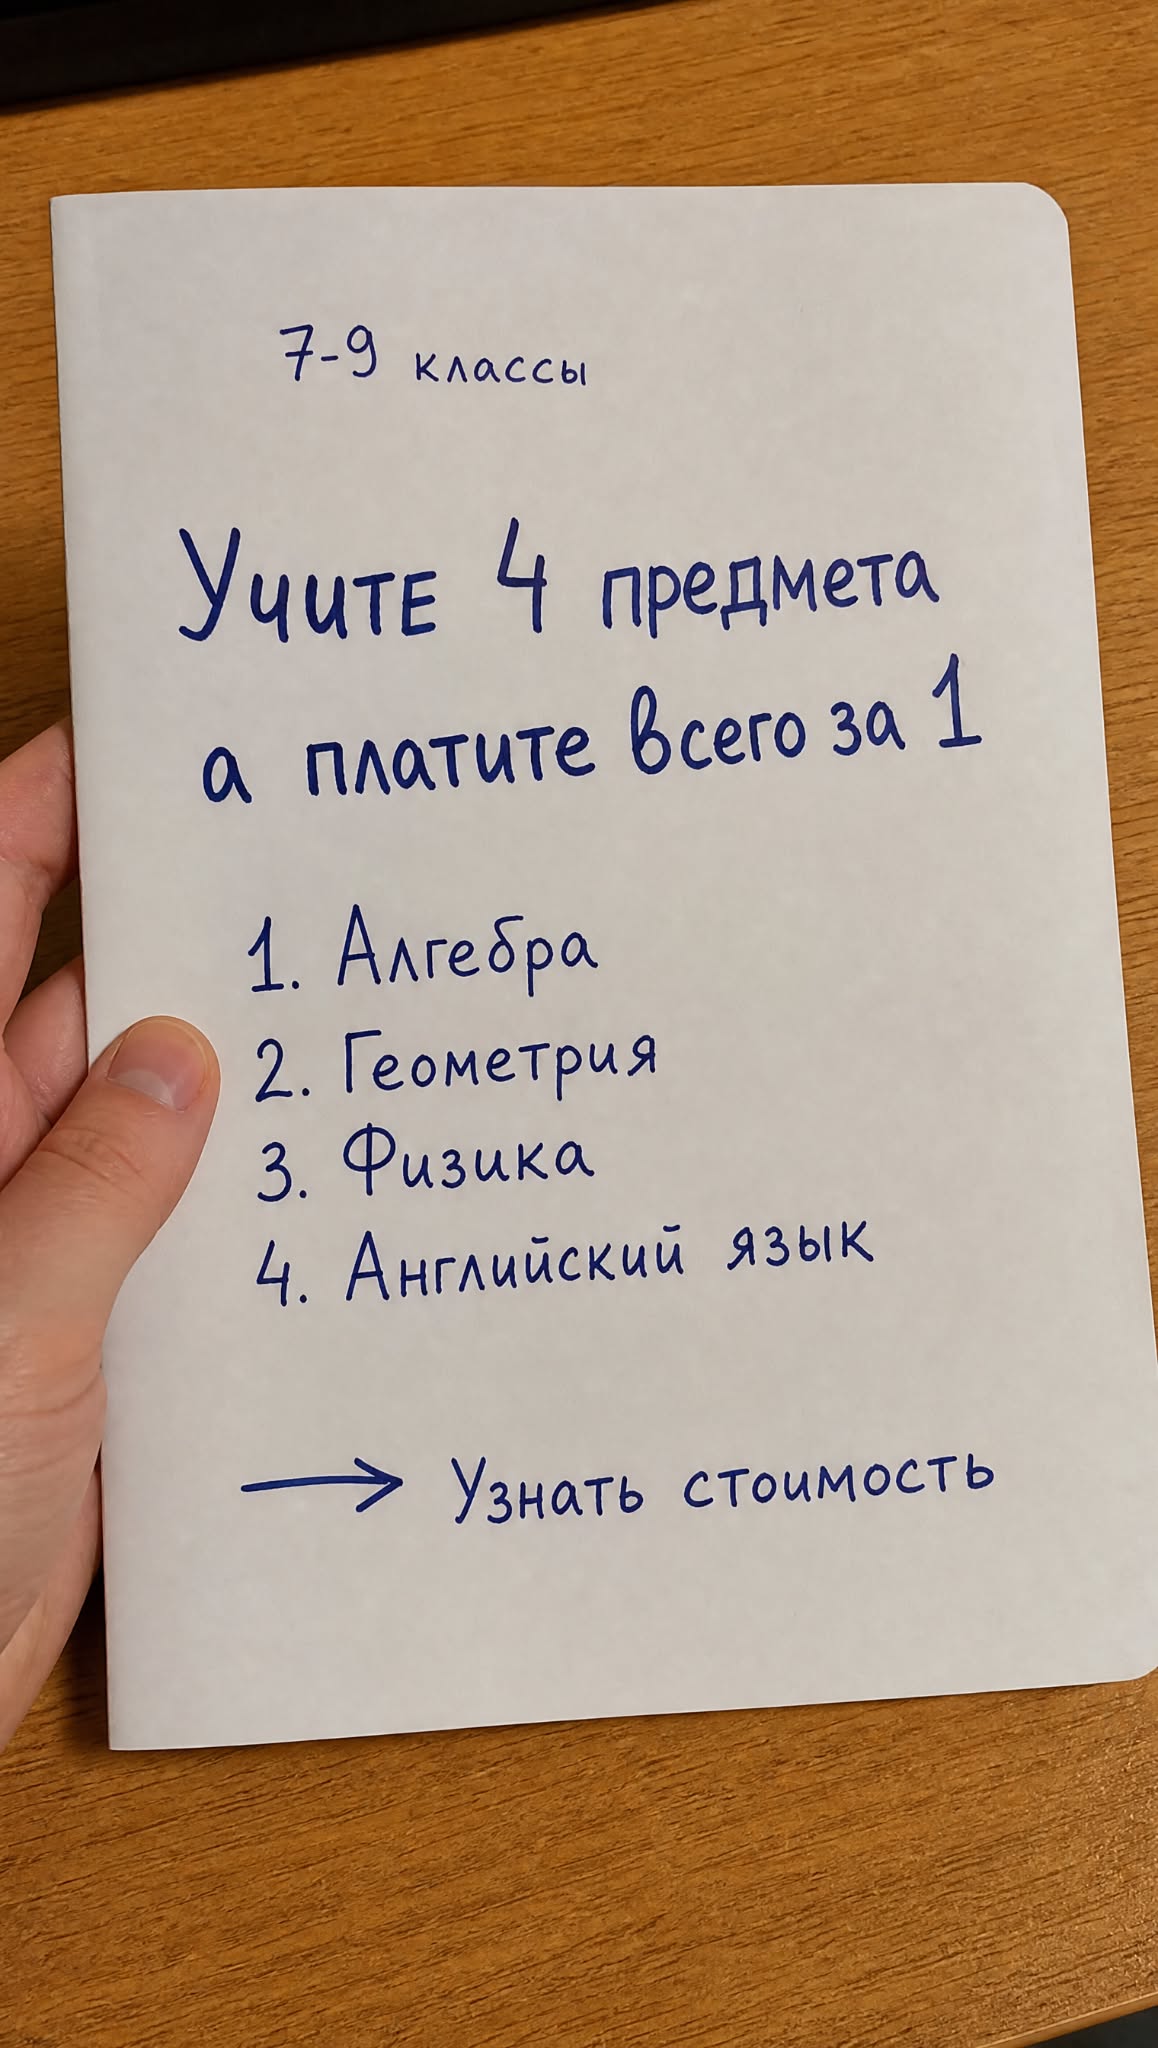 7-9 классы
Учите 4 предмета
а платите всего за 1
1. Алгебра
2. Геометрия
3. Физика
4. Английский язык
→ Узнать стоимость